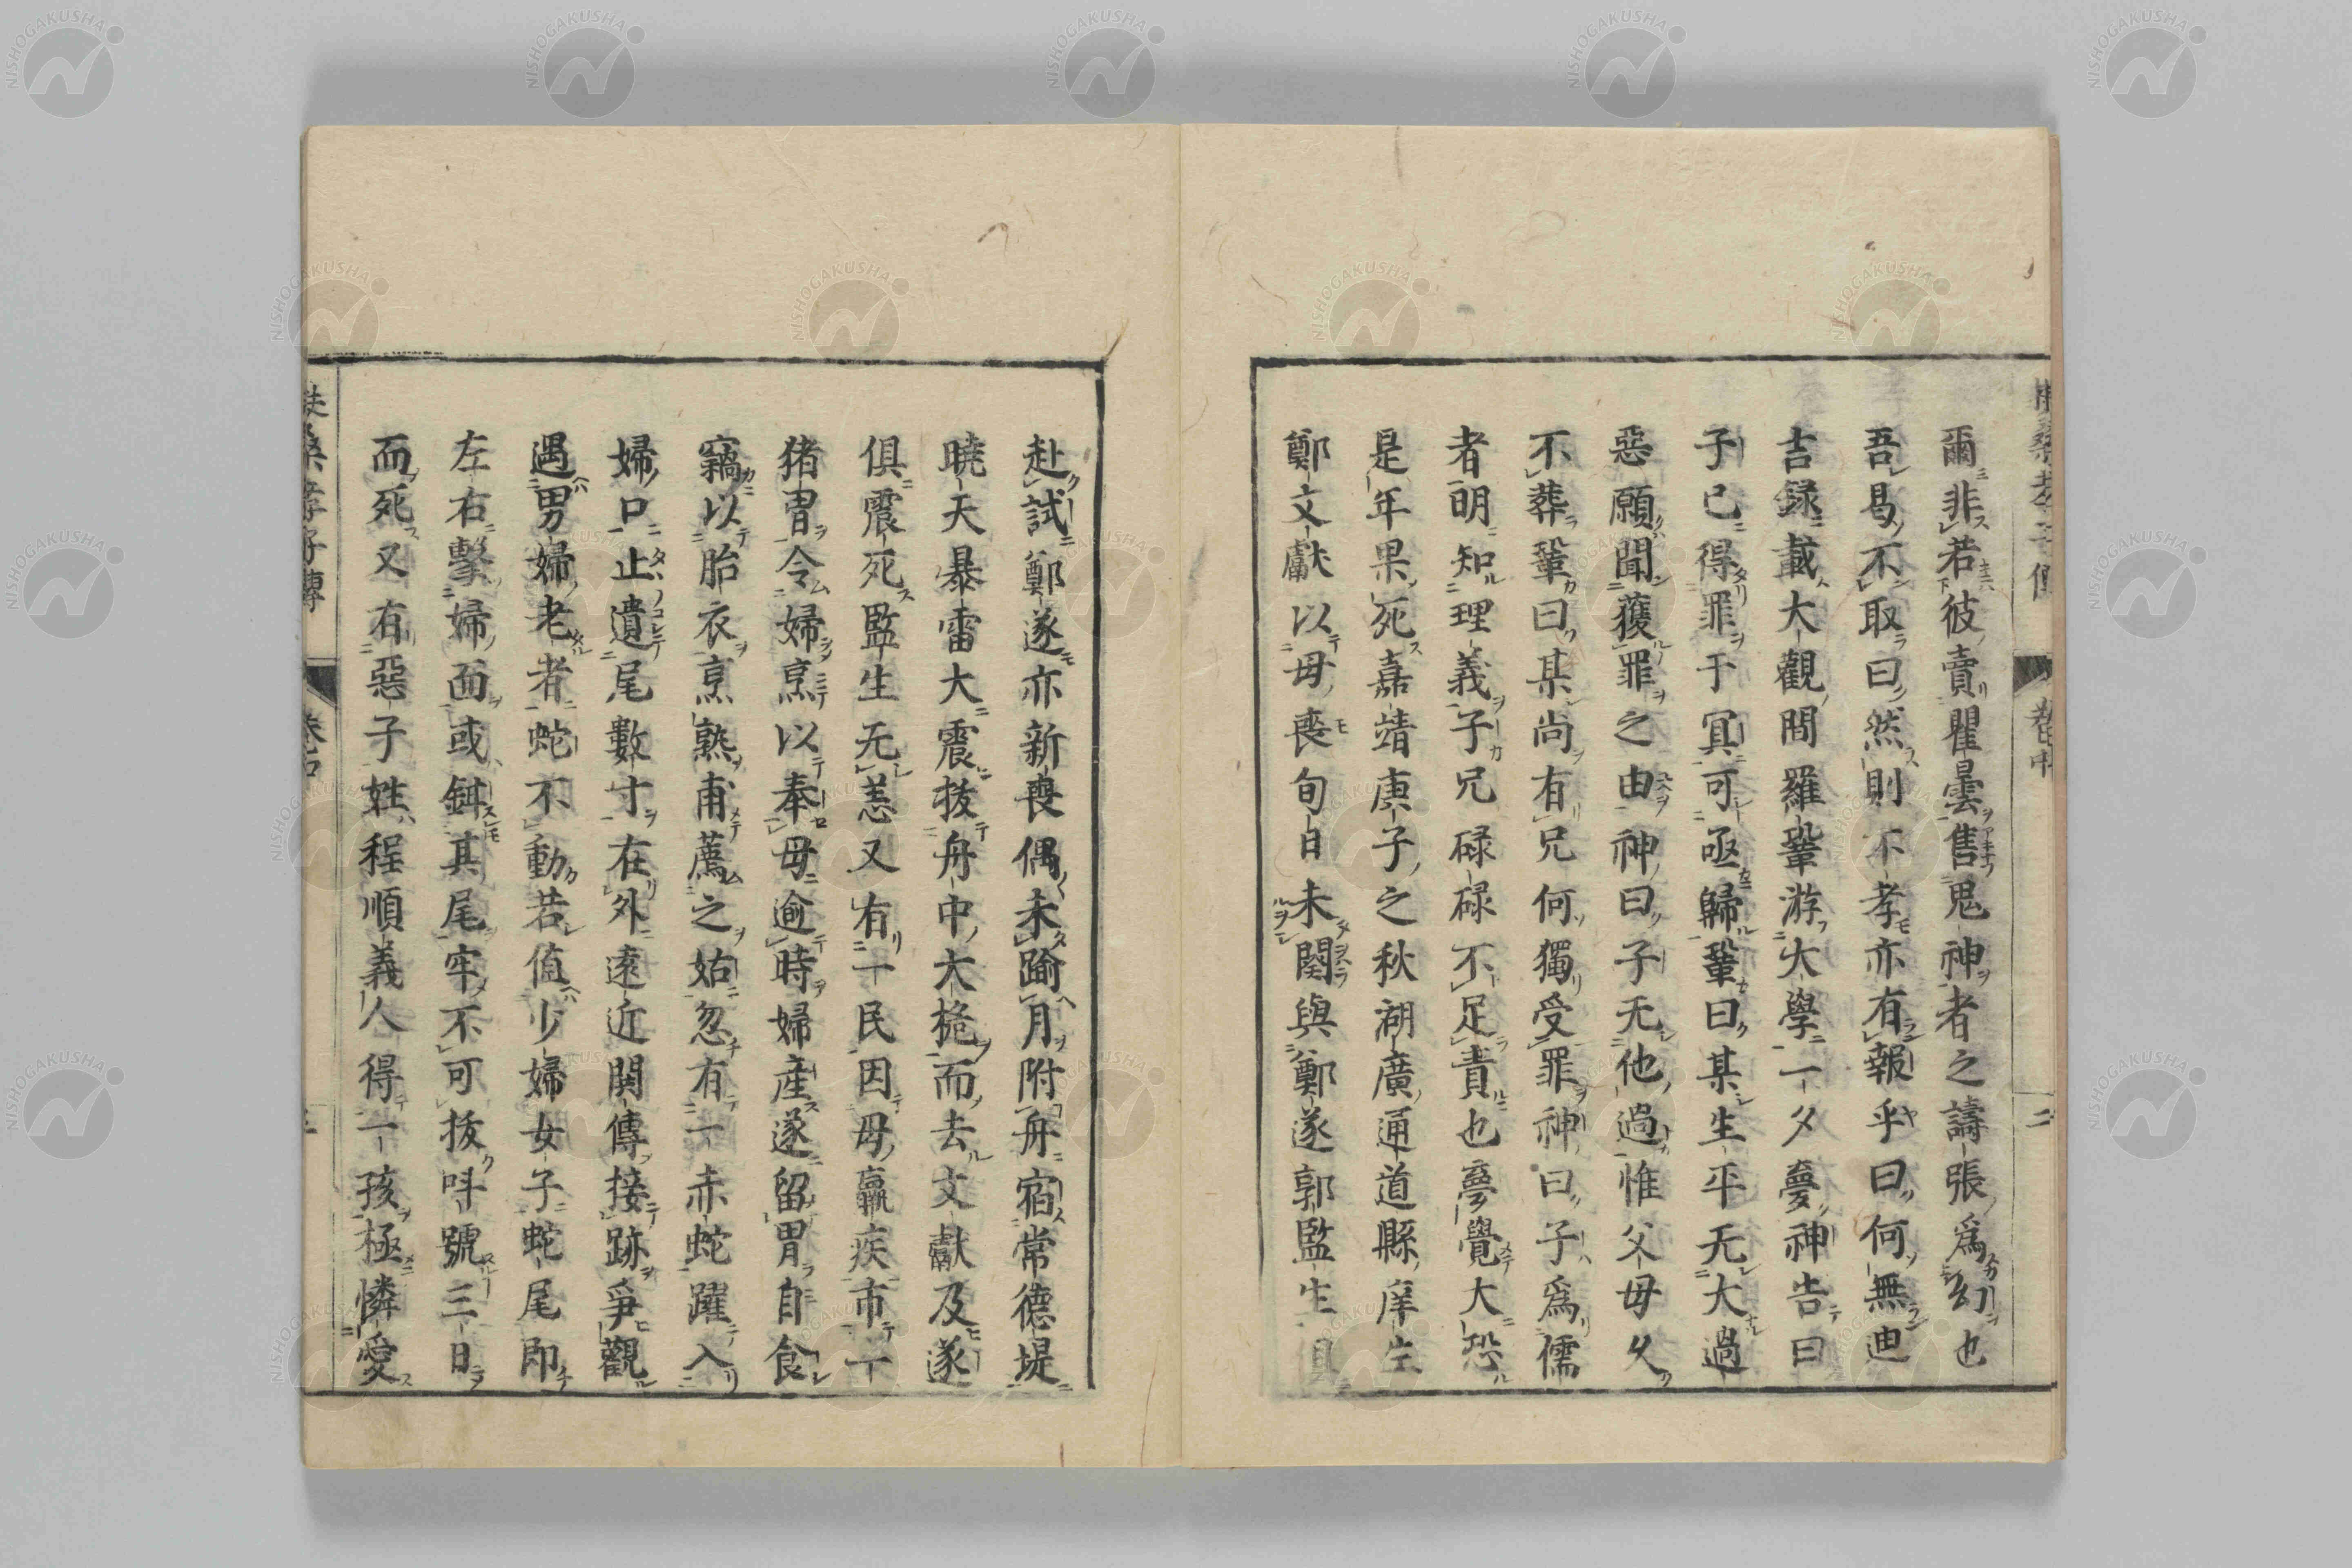 爾非若彼賣瞿曇售鬼神者之譸張爲幻也
吾曷不取曰然則不孝亦有報乎曰何無迪
吉録載大觀間羅鞏游大學一夕夢神告曰
子已得罪于冥可亟歸鞏曰某生平无大過
惡願聞獲罪之由神曰子无他過惟父母久
不葬鞏曰某尚有兄何獨受罪神曰子爲儒
者明知理義子兄碌碌不足責也夢覺大恐
是年果死嘉靖庚子之秋湖廣通道縣庠生
鄭文獻以母喪旬日未闋與鄭遂郭監生俱
赴試鄭遂亦新喪偶未踰月附舟宿常德堤
曉天暴雷大震拔舟中大桅而去文獻及遂
俱震死監生无恙又有一民因母羸疾市一
猪胃令婦烹以奉母逾時婦產遂留胃自食
竊以胎衣烹熟甫薦之姑忽有一赤蛇躍入
婦口止遺尾數寸在外遠近閧傳接跡爭觀
遇男婦老者蛇不動若值少婦女子蛇尾即
左右擊婦面或鉺其尾牢不可拔呌號三日
而死又有惡子姓程順義人得一孩極憐愛
扶桑孝子傳
卷中
二